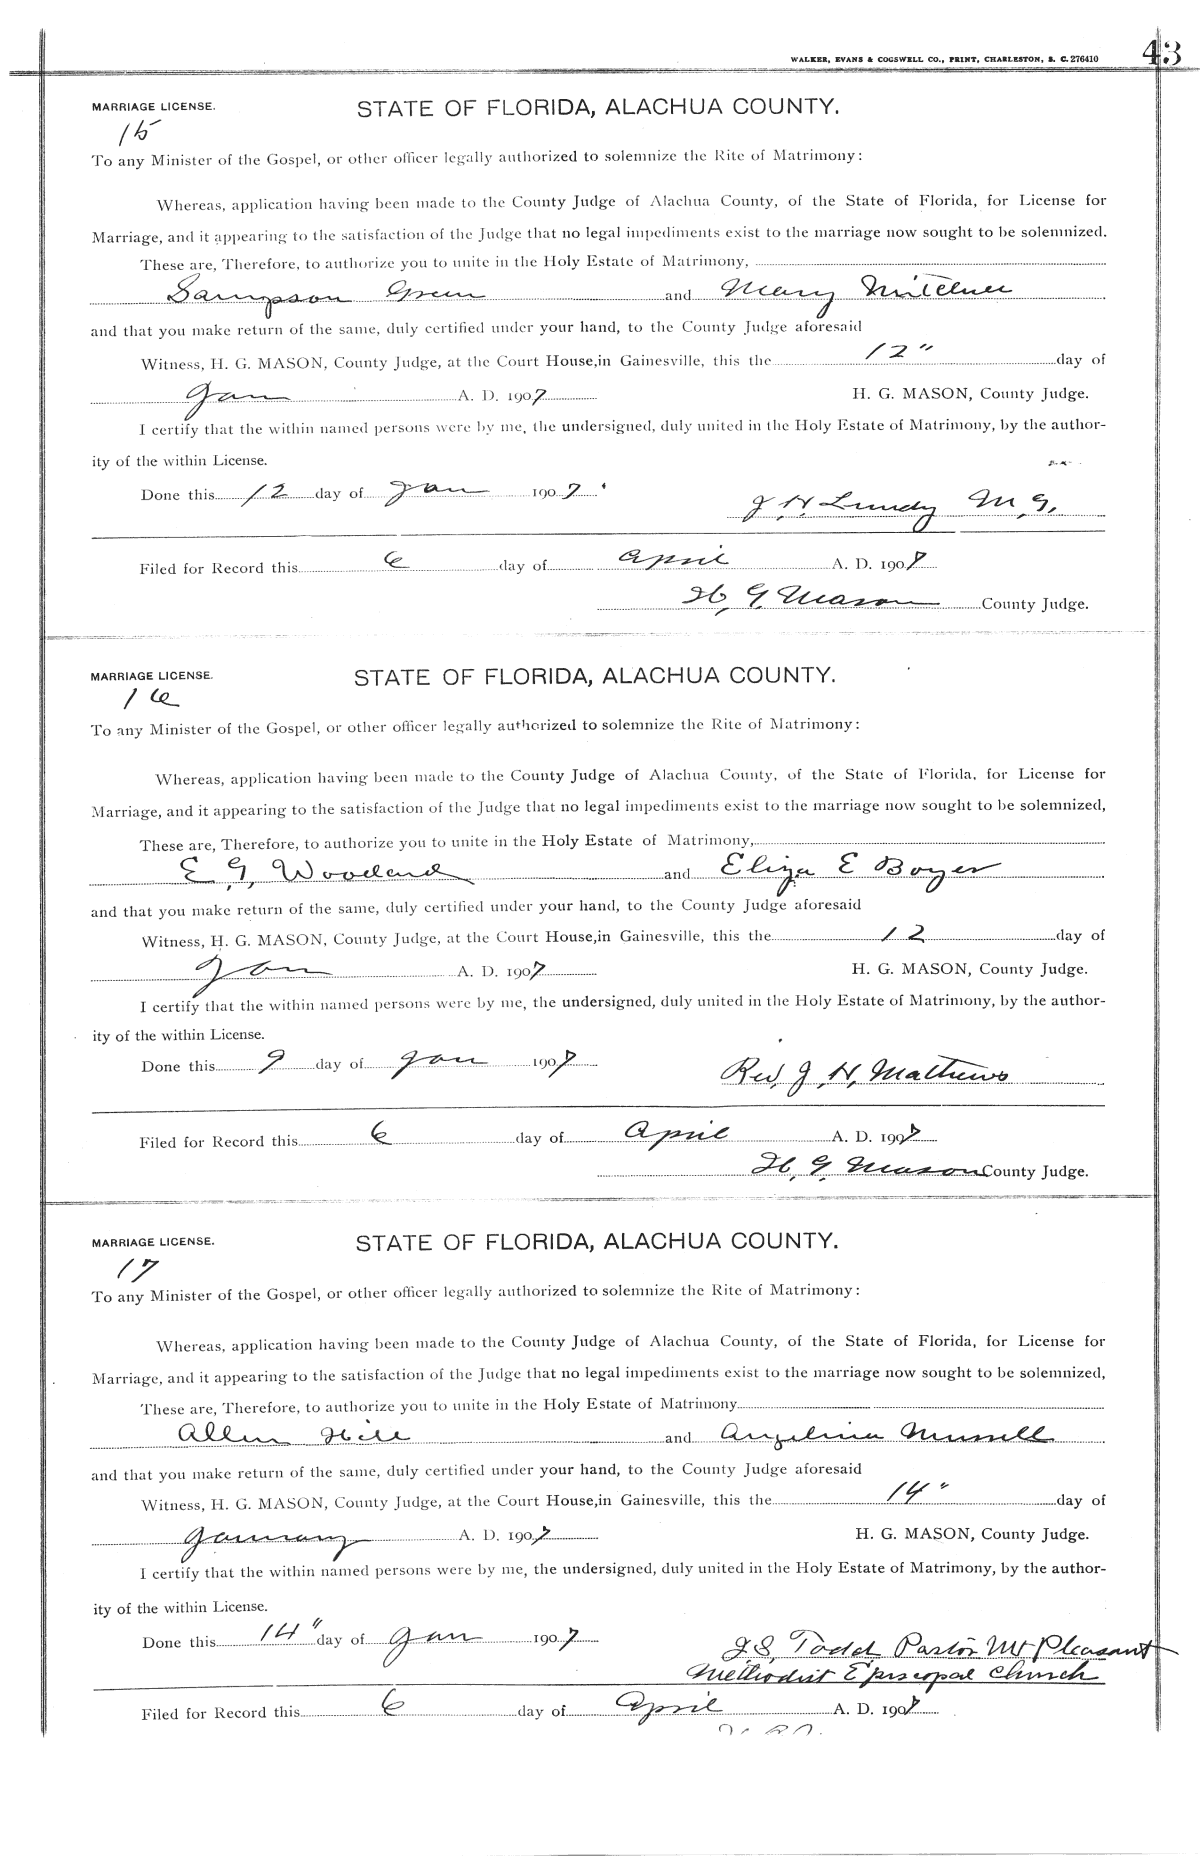 WALKER, EVANS & COGSWELL CO., PRINT, CHARLESTON, S. C. 276410
43
MARRIAGE LICENSE.
STATE OF FLORIDA, ALACHUA COUNTY.
15
To any Minister of the Gospel, or other officer legally authorized to solemnize the Rite of Matrimony:
Whereas, application having been made to the County Judge of Alachua County, of the State of Florida, for License for
Marriage, and it appearing to the satisfaction of the Judge that no legal impediments exist to the marriage now sought to be solemnized.
These are, Therefore, to authorize you to unite in the Holy Estate of Matrimony,
Sampson Green and Mary
and that you make return of the same, duly certified under your hand, to the County Judge aforesaid
Witness, H. G. MASON, County Judge, at the Court House, in Gainesville, this the 12" day of
Jan A. D. 1907 H. G. MASON, County Judge.
I certify that the within named persons were by me, the undersigned, duly united in the Holy Estate of Matrimony, by the author-
ity of the within License.
Done this 12 day of Jan 1907
J. H. Lundy M.G.
Filed for Record this 6 day of April A. D. 1907
H. G. Mason County Judge.
MARRIAGE LICENSE.
STATE OF FLORIDA, ALACHUA COUNTY.
16
To any Minister of the Gospel, or other officer legally authorized to solemnize the Rite of Matrimony:
Whereas, application having been made to the County Judge of Alachua County, of the State of Florida, for License for
Marriage, and it appearing to the satisfaction of the Judge that no legal impediments exist to the marriage now sought to be solemnized,
These are, Therefore, to authorize you to unite in the Holy Estate of Matrimony,
E. G. Woodard and Eliza E Boyer
and that you make return of the same, duly certified under your hand, to the County Judge aforesaid
Witness, H. G. MASON, County Judge, at the Court House, in Gainesville, this the 12 day of
Jan A. D. 1907 H. G. MASON, County Judge.
I certify that the within named persons were by me, the undersigned, duly united in the Holy Estate of Matrimony, by the author-
ity of the within License.
Done this 9 day of Jan 1907
Rev. J. H. Mathews
Filed for Record this 6 day of April A. D. 1907
H. G. Mason County Judge.
MARRIAGE LICENSE.
STATE OF FLORIDA, ALACHUA COUNTY.
17
To any Minister of the Gospel, or other officer legally authorized to solemnize the Rite of Matrimony:
Whereas, application having been made to the County Judge of Alachua County, of the State of Florida, for License for
Marriage, and it appearing to the satisfaction of the Judge that no legal impediments exist to the marriage now sought to be solemnized,
These are, Therefore, to authorize you to unite in the Holy Estate of Matrimony
Allen Hill and Angelina
and that you make return of the same, duly certified under your hand, to the County Judge aforesaid
Witness, H. G. MASON, County Judge, at the Court House, in Gainesville, this the 14" day of
January A. D. 1907 H. G. MASON, County Judge.
I certify that the within named persons were by me, the undersigned, duly united in the Holy Estate of Matrimony, by the author-
ity of the within License.
Done this 14" day of Jan 1907
J. S. Todd Pastor Mt Pleasant
Methodist Episcopal Church
Filed for Record this 6 day of April A. D. 1907